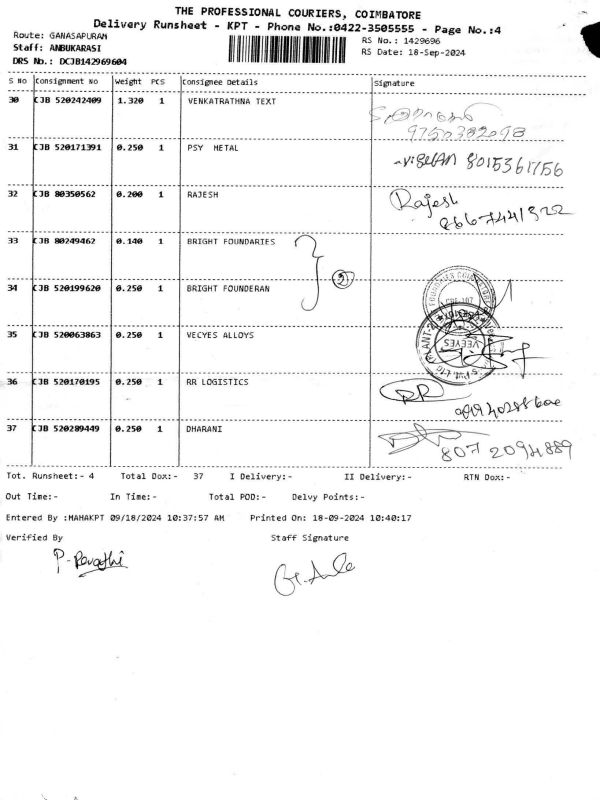 THE PROFESSIONAL COURIERS, COIMBATORE
Delivery Runsheet - KPT - Phone No.:0422-3505555 - Page No.:4
Route: GANASAPURAM
RS No.: 1429696
Staff: ANBUKARASI
RS Date: 18-Sep-2024
DRS No.: DCJB142969604
S No Consignment No Weight PCS Consignee Details Signature
30 CJB 520242409 1.320 1 VENKATRATHNA TEXT
31 CJB 520171391 0.250 1 PSY METAL 8015361756
32 CJB 80350562 0.200 1 RAJESH Rajesh
8667441322
33 CJB 80249462 0.140 1 BRIGHT FOUNDARIES
2
34 CJB 520199620 0.250 1 BRIGHT FOUNDERAN
35 CJB 520063863 0.250 1 VECYES ALLOYS
VEEYES
36 CJB 520170195 0.250 1 RR LOGISTICS RR
37 CJB 520289449 0.250 1 DHARANI
8072094889
Tot. Runsheet:- 4 Total Dox:- 37 I Delivery:- II Delivery:- RTN Dox:-
Out Time:- In Time:- Total POD:- Delvy Points:-
Entered By :MAHAKPT 09/18/2024 10:37:57 AM Printed On: 18-09-2024 10:40:17
Verified By Staff Signature
P. Revathi